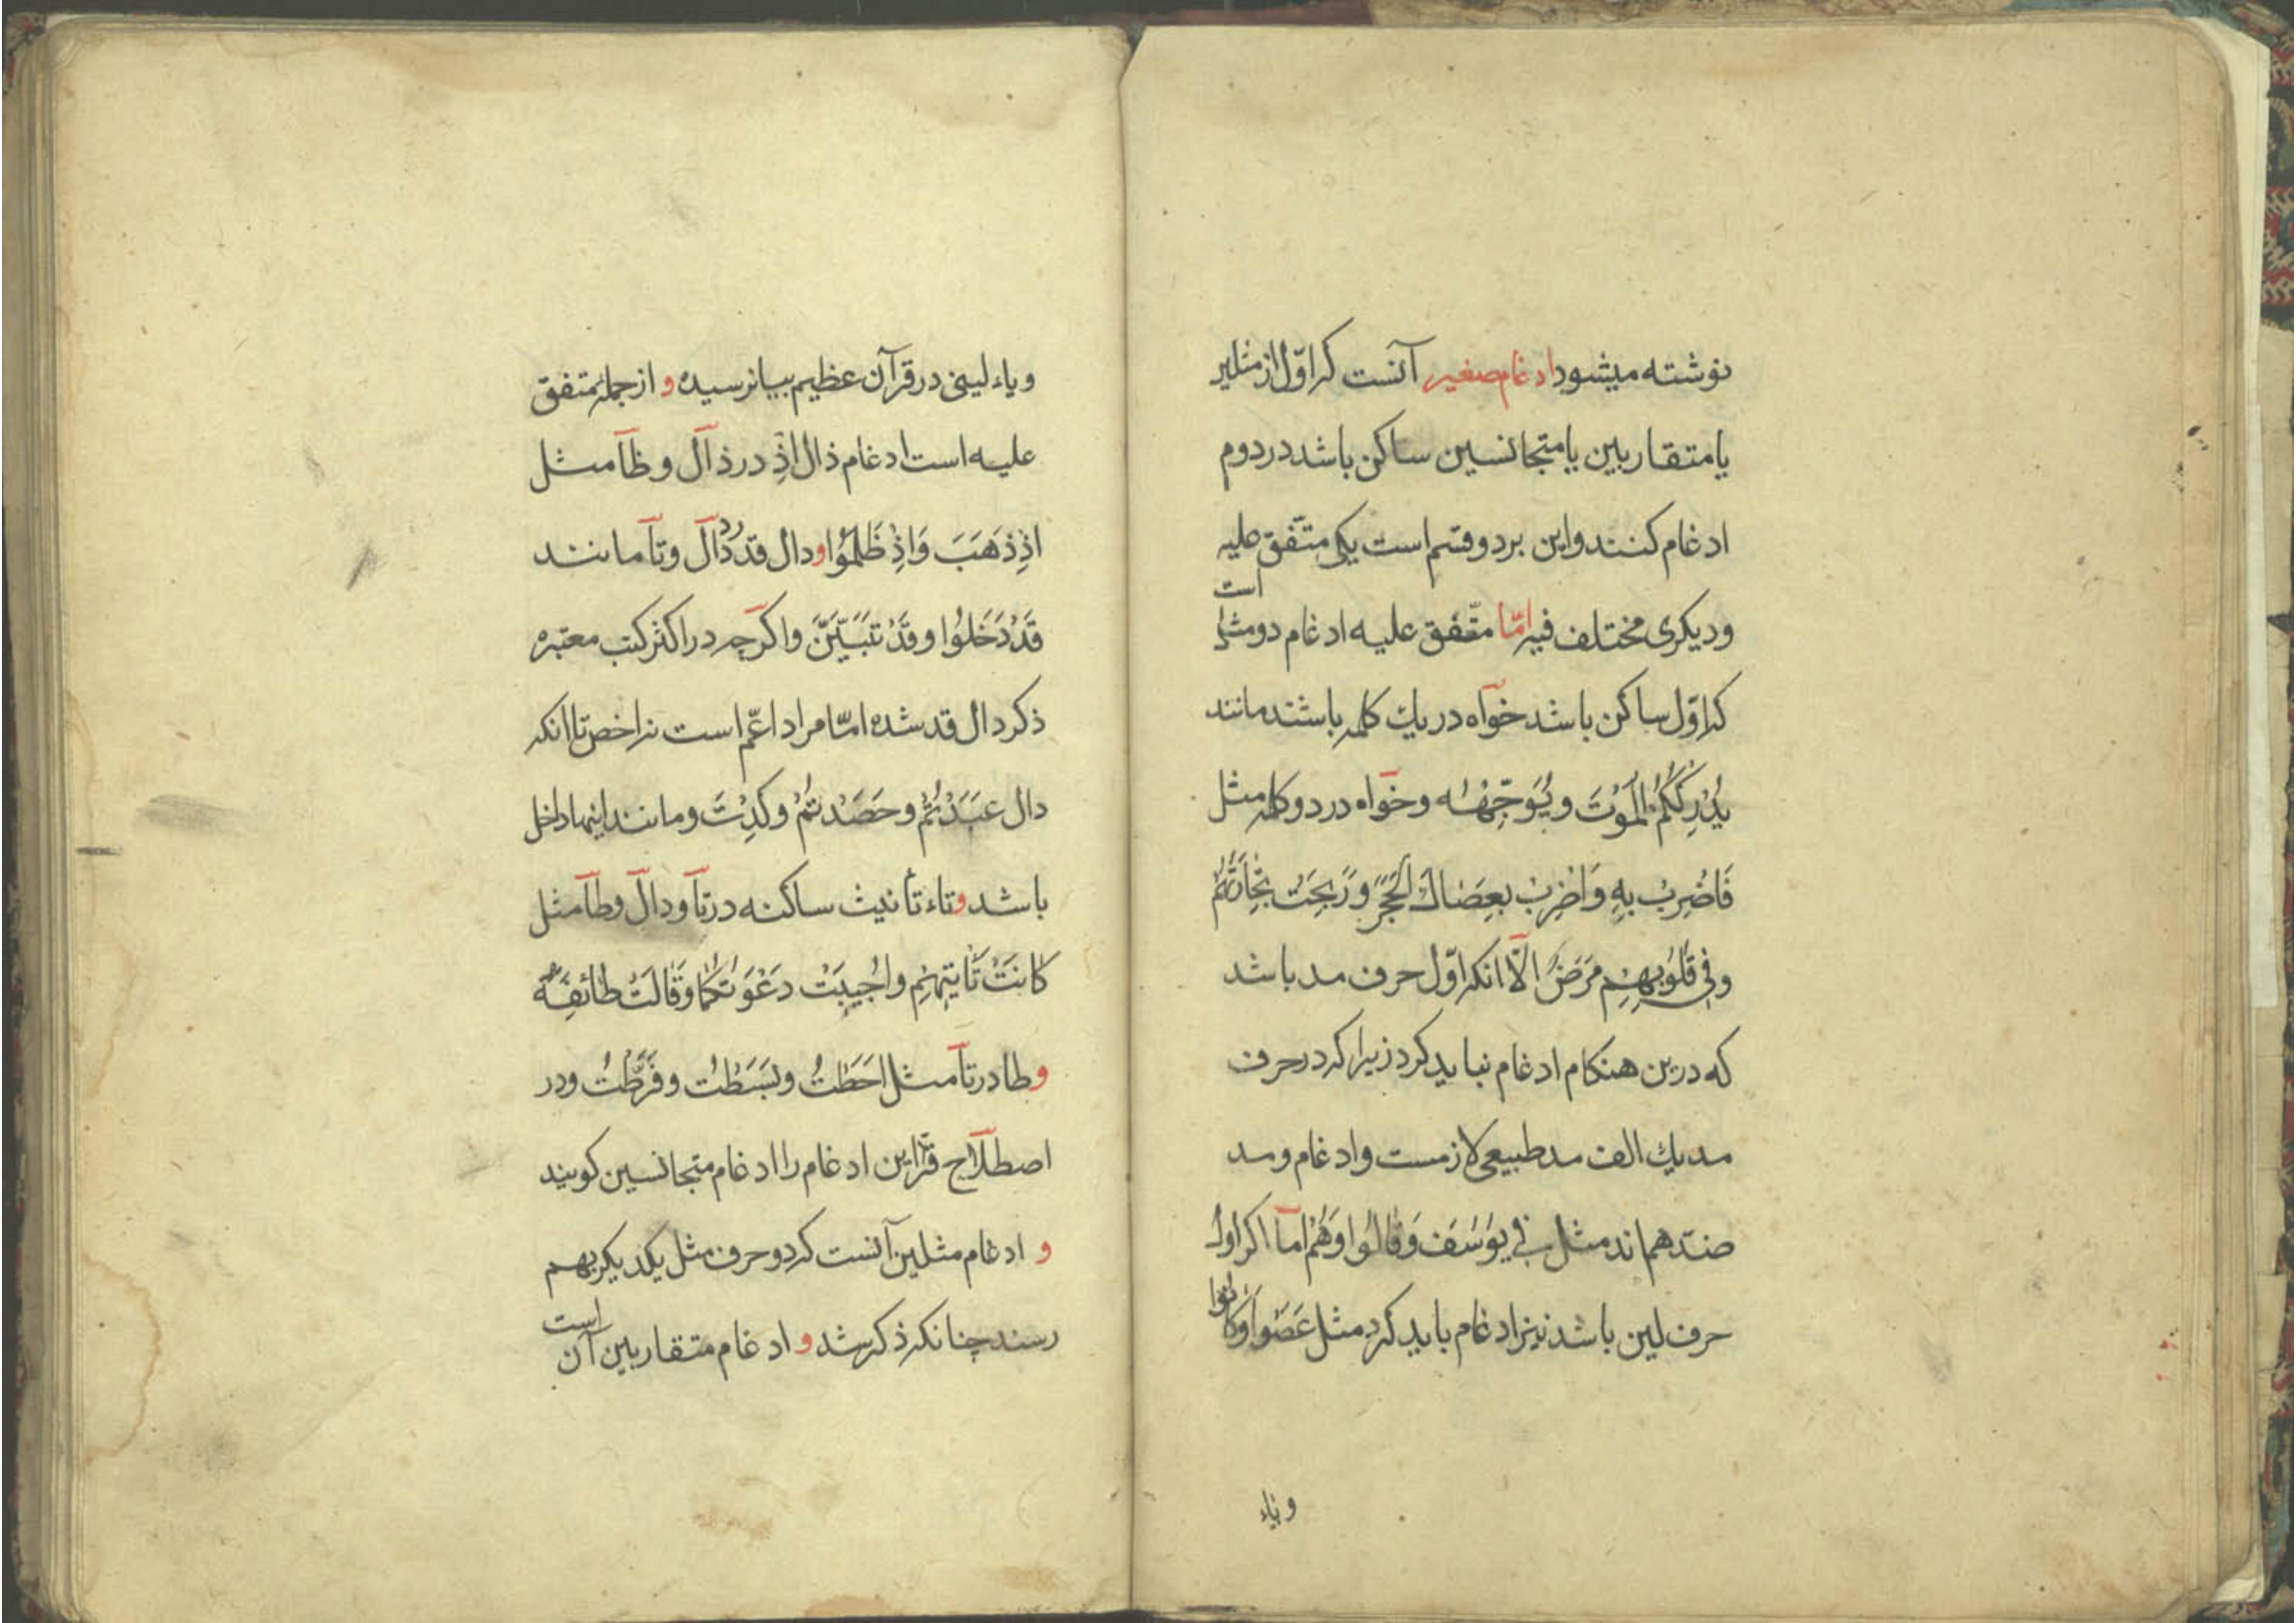 نوشته میشود ادغام صغیر آنست که اوّل از مثلین
یا متقاربین یا متجانسین ساکن باشد در دوم
ادغام کنند و این بر دو قسم است یکی متّفق علیه
است
و دیکری مختلف فیه امّا متّفق علیه ادغام دو مثل
که اوّل ساکن باشد خوآه در یك کلمه باشند مانند
یُدْرِكْكُمُ الْمَوْتُ و یُوَجِّهْهُ و خوآه در دو کلمه مثل
فَاضْرِبْ بِهِ وَاضْرِبْ بِعَصَاكَ الْحَجَرَ وَ رَبِحَتْ تِجَارَتُهُمْ
و فِی قُلُوبِهِمْ مَرَضٌ الّا انکه اوّل حرف مد باشد
که درین هنکام ادغام نباید کرد زیرا که در حرف
مد یك الف مد طبیعی لازمست و ادغام و مد
ضدّ هم اند مثل فِی یُوسُفَ وَ قَالُوا وَهُمْ امّآ اکر اول
حرف لین باشد نیز ادغام باید کرد مثل عَصَوْا وَكَانُوا
و یاء
و یاء لینی در قرآن عظیم بیا نرسیده و از جمله متفق
علیه است ادغام ذال اِذْ در ذآل و ظآ مثل
اِذْ ذَهَبَ وَ اِذْ ظَلَمُوا و دال قد در دآل و تآ مانند
قَدْ دَخَلُوا و قَدْ تَبَیَّنَ و اکرچه در اکثر کتب معتبره
ذکر دال قد شده امّا مراد اعّم است نه اخص تا انکه
دال عَبَدْتُمْ و حَصَدْتُمْ و كِدْتَ و مانند اینها داخل
باشد و تاء تأنیث ساکنه در تآ و دآل و طآ مثل
كَانَتْ تَأْتِیهِمْ و اُجِیبَتْ دَعْوَتُكُمَا وَ قَالَتْ طَائِفَةٌ
و طا در تآ مثل اَحَطْتُ و بَسَطْتَ و فَرَّطْتُ و در
اصطلآح قرّا این ادغام را ادغام متجانسین کویند
و ادغام مثلین آنست که دو حرف مثل یکدیکر بهم
رسند چنانکه ذکر شد و ادغام متقاربین آن
است